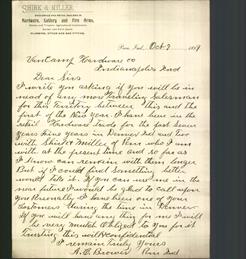 SHIRK & MILLER,
Hardware, Cutlery and Fire Arms,
PLUMBING, STEAM AND GAS FITTING.
Peru, Ind., Oct 9 1889
VanCamp Hardware Co
Indianapolis Ind
Dear Sirs
I write you asking if you will be in
need of any more traveling salesman
for this territory between this and the
first of the New year. I have been in the
retail Hardware trade for the past seven
years nine years in Denver Ind and two
with Shirk & Miller of Peru who I am
with at the present time and so far as
I know can remain with them longer
But if I could find something better
would like it. If you can use me in the
near future I would be glad to call upon
you Personally I have been one of your
customers during the time in Denver
If you will have any thing for me I will
be very much Obliged to you for it
trusting this will be confidential
I remain truly Yours
A. C. Brower
Peru Ind